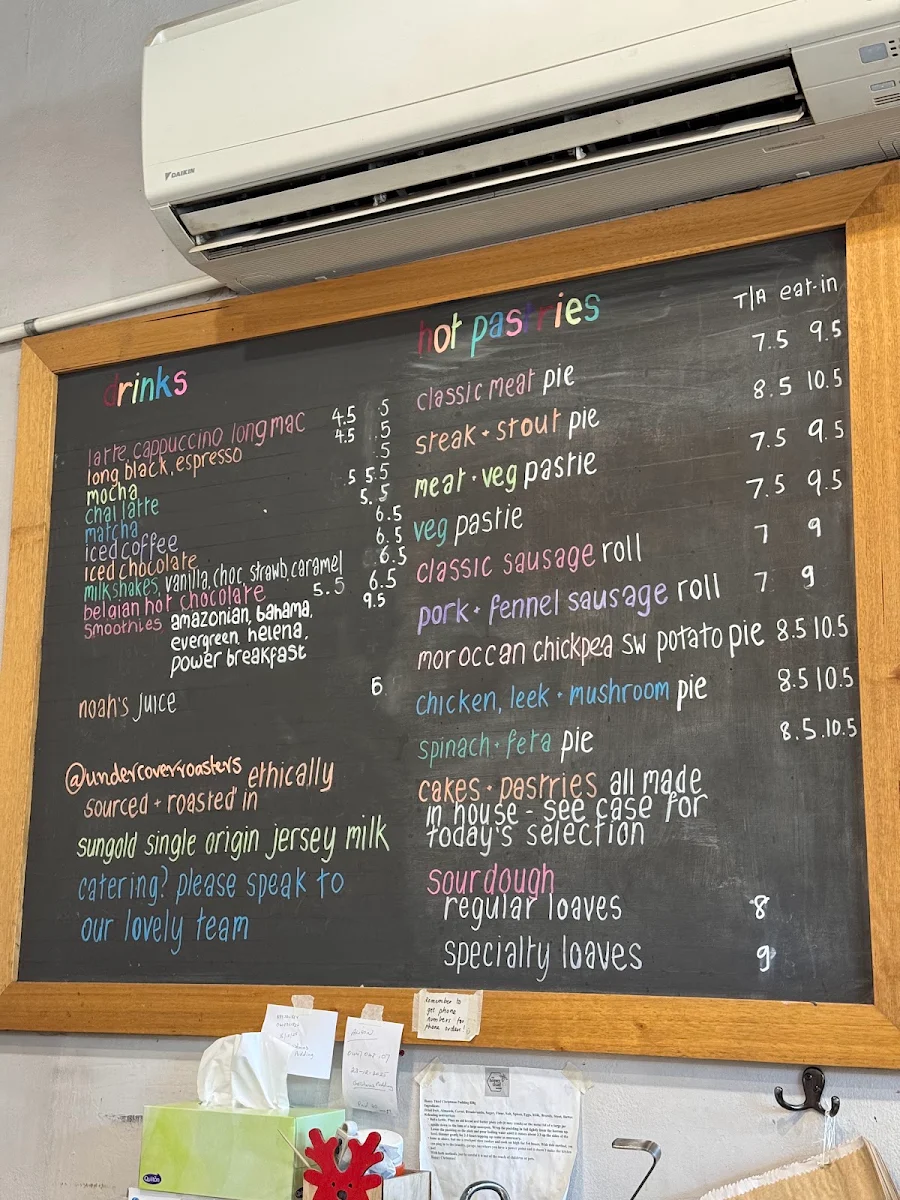 DAIKIN
drinks
latte, cappuccino longmac 4.5 .5
long black, espresso 4.5 .5
mocha .5
chai latte 5 5.5
matcha 5.5
iced coffee 6.5
iced chocolate 6.5
milkshakes, vanilla, choc, strawb, caramel 6.5
belgian hot chocolate 5.5 6.5
smoothies, amazonian, bahama, 9.5
evergreen, helena,
power breakfast
noah's juice 6
@undercoverroasters ethically
sourced + roasted in
sungold single origin jersey milk
catering? please speak to
our lovely team
hot pastries T/A eat-in
classic meat pie 7.5 9.5
steak + stout pie 8.5 10.5
meat + veg pastie 7.5 9.5
veg pastie 7.5 9.5
classic sausage roll 7 9
pork + fennel sausage roll 7 9
moroccan chickpea sw potato pie 8.5 10.5
chicken, leek + mushroom pie 8.5 10.5
spinach + feta pie 8.5 10.5
cakes + pastries all made
in house - see case for
today's selection
sourdough
regular loaves 8
specialty loaves 9
remember to
get phone
numbers for
phone orders!
Quilton